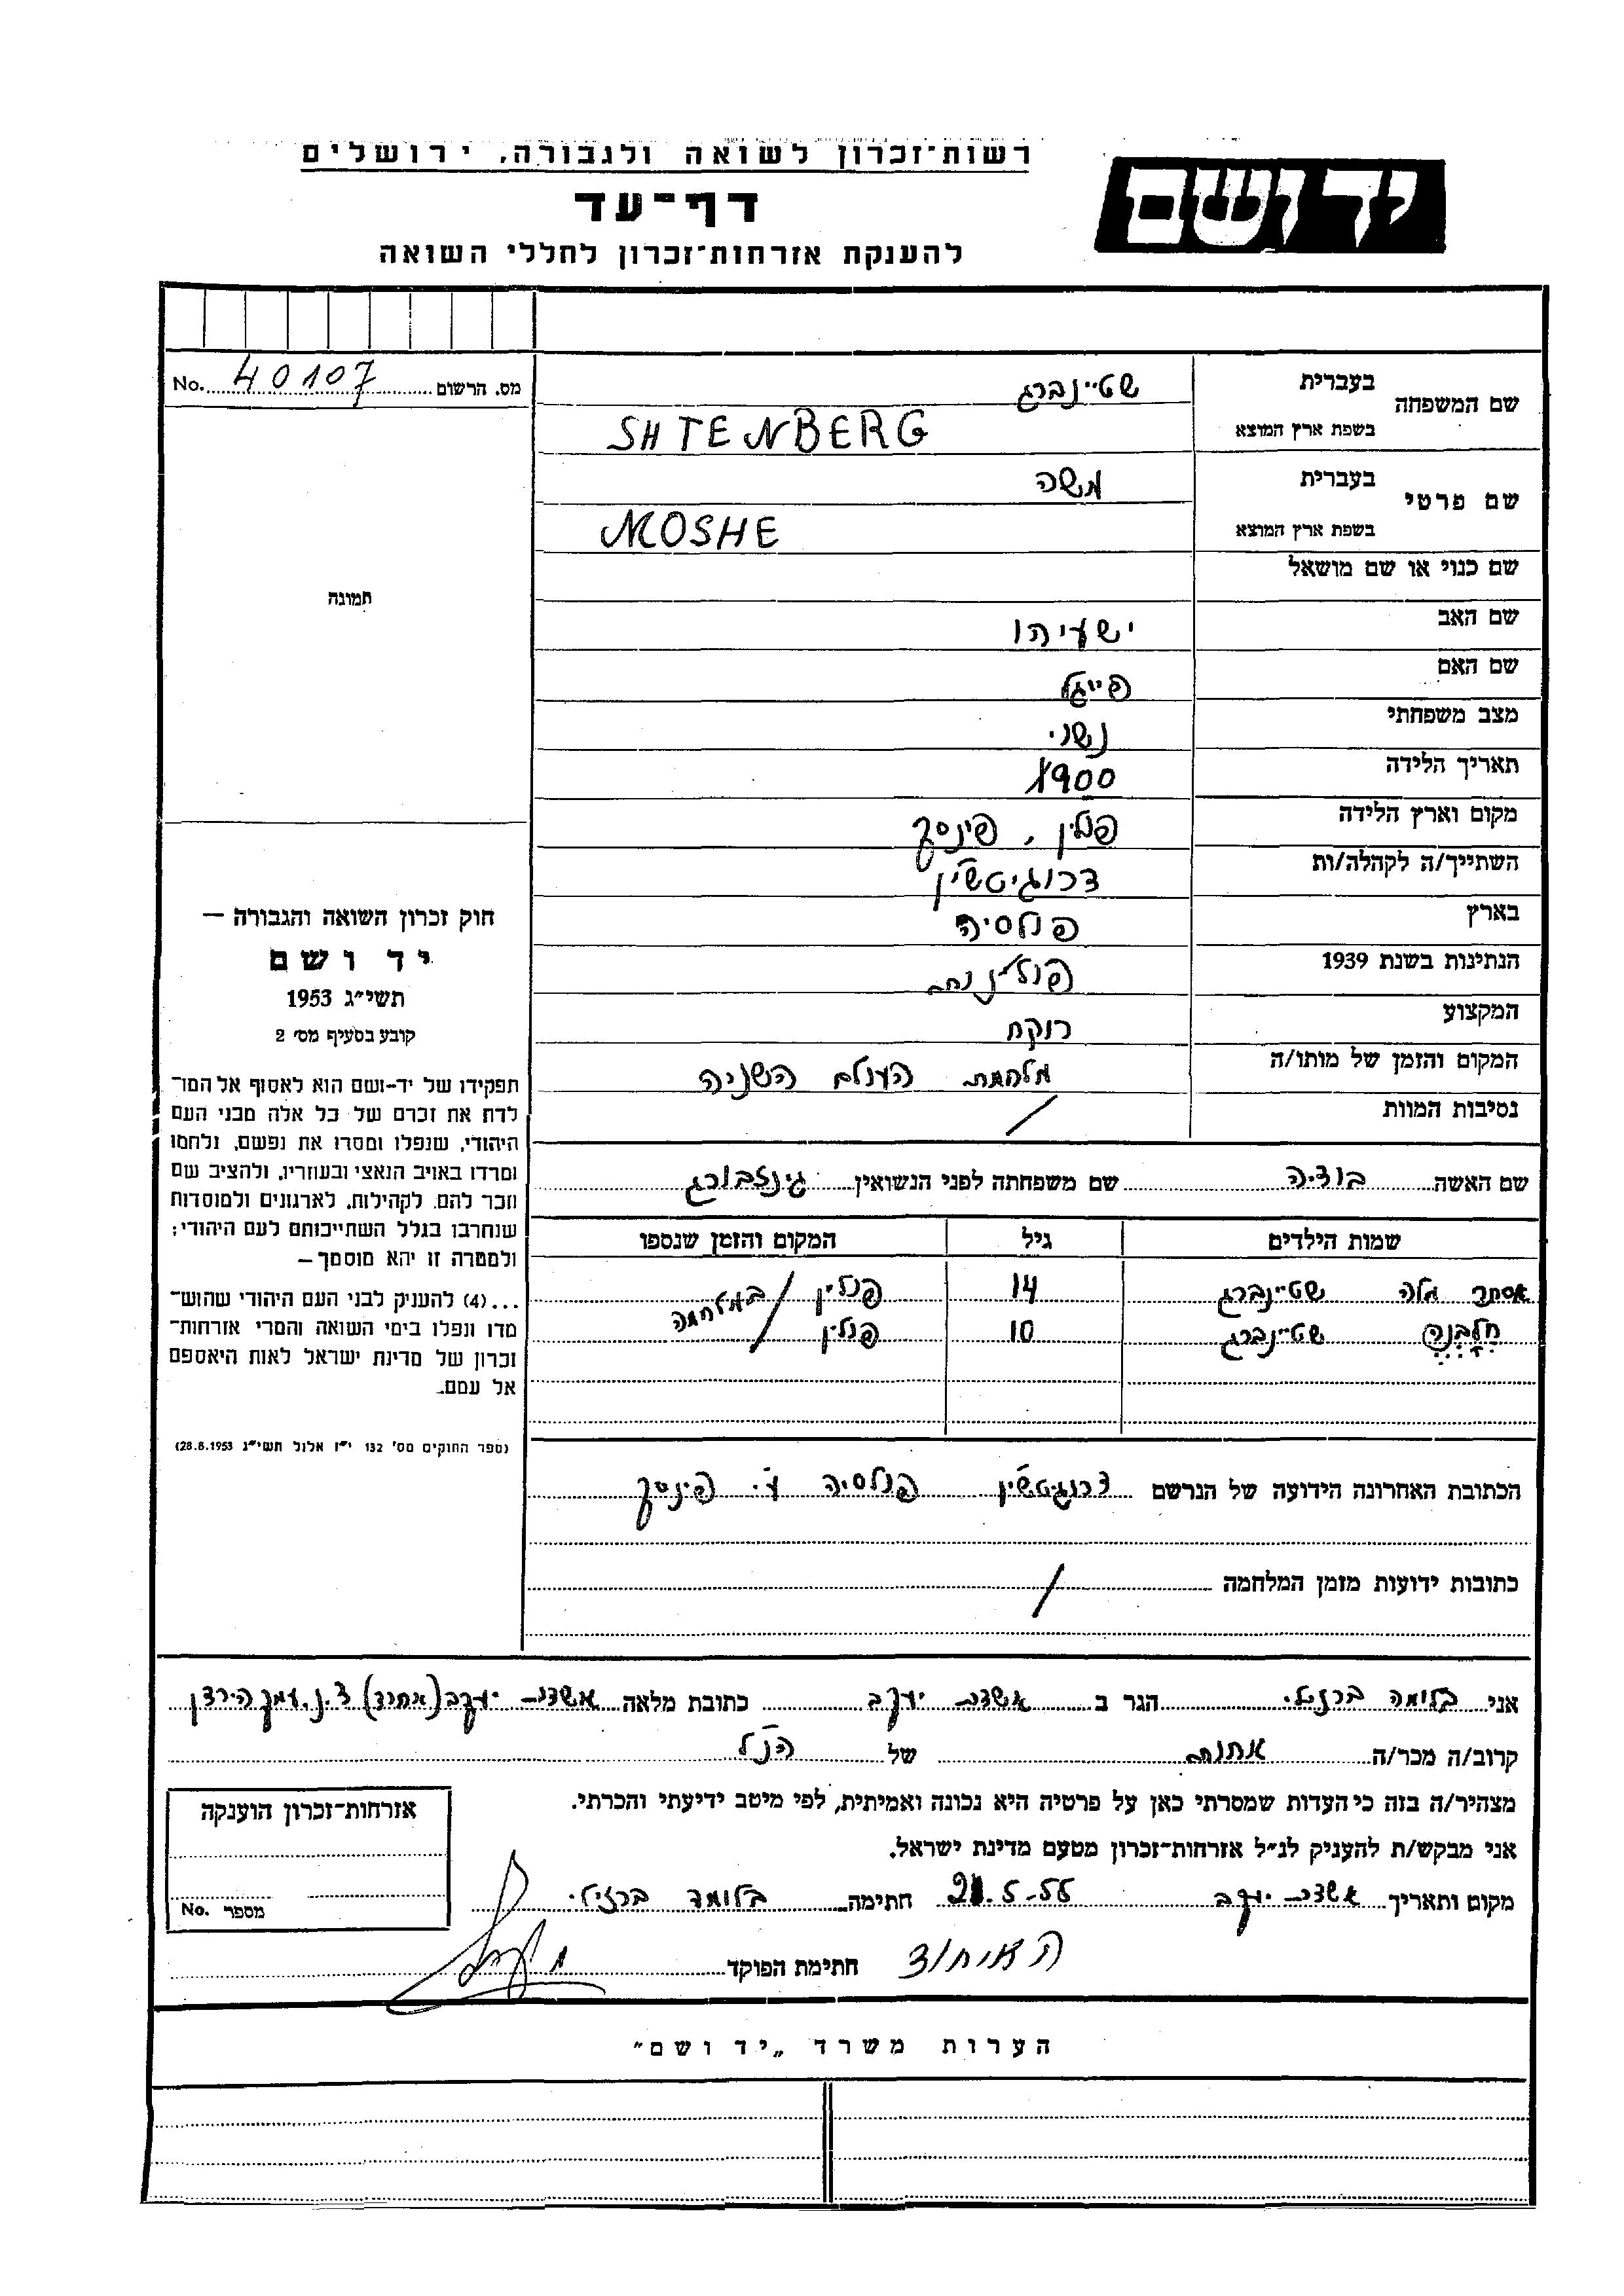 רשות־זכרון לשואה ולגבורה, ירושלים
יד ושם
דף־עד
להענקת אזרחות־זכרון לחללי השואה
מס. הרשום 40107 No.
שם המשפחה
בעברית שטיינברג
בשפת ארץ המוצא SHTENBERG
שם פרטי
בעברית משה
בשפת ארץ המוצא MOSHE
שם כנוי או שם מושאל
שם האב ישעיהו
שם האם פייגל
מצב משפחתי נשוי
תאריך הלידה 1900
מקום וארץ הלידה פולין, פינסק
השתייך/ה לקהלה/ות דרוגיטשין
בארץ פולסיה
הנתינות בשנת 1939 פולנית
המקצוע רוקח
המקום והזמן של מותו/ה מלחמת העולם השניה
נסיבות המוות /
תמונה
חוק זכרון השואה והגבורה —
יד ושם
תשי״ג 1953
קובע בסעיף מס׳ 2
תפקידו של יד-ושם הוא לאסוף אל המו־
לדת את זכרם של כל אלה מבני העם
היהודי, שנפלו ומסרו את נפשם, נלחמו
ומרדו באויב הנאצי ובעוזריו, ולהציב שם
וזכר להם, לקהילות, לארגונים ולמוסדות
שנחרבו בגלל השתייכותם לעם היהודי;
ולמטרה זו יהא מוסמך —
...(4) להעניק לבני העם היהודי שהוש־
מדו ונפלו בימי השואה והמרי אזרחות־
זכרון של מדינת ישראל לאות היאספם
אל עמם.
(ספר החוקים מס׳ 132 י״ז אלול תשי״ג 28.8.1953)
שם האשה שם משפחתה לפני הנשואין גינזבורג
שמות הילדים גיל המקום והזמן שנספו
אסתר שטיינברג 14 פולין / במלחמה
שטיינברג 10 פולין
הכתובת האחרונה הידועה של הנרשם דרוגיטשין פולסיה ע״י פינסק
כתובות ידועות מזמן המלחמה /
אני בלומה ברזילי הגר ב אשדות יעקב כתובת מלאה אשדות יעקב (אחוד) ד.נ. עמק הירדן
קרוב/ה מכר/ה אחות של הנ״ל
מצהיר/ה בזה כי העדות שמסרתי כאן על פרטיה היא נכונה ואמיתית, לפי מיטב ידיעתי והכרתי.
אני מבקש/ת להעניק לנ״ל אזרחות־זכרון מטעם מדינת ישראל.
מקום ותאריך אשדות יעקב חתימה בלומה ברזילי
האיחוד
חתימת הפוקד
אזרחות־זכרון הוענקה
מספר No.
הערות משרד „יד ושם״